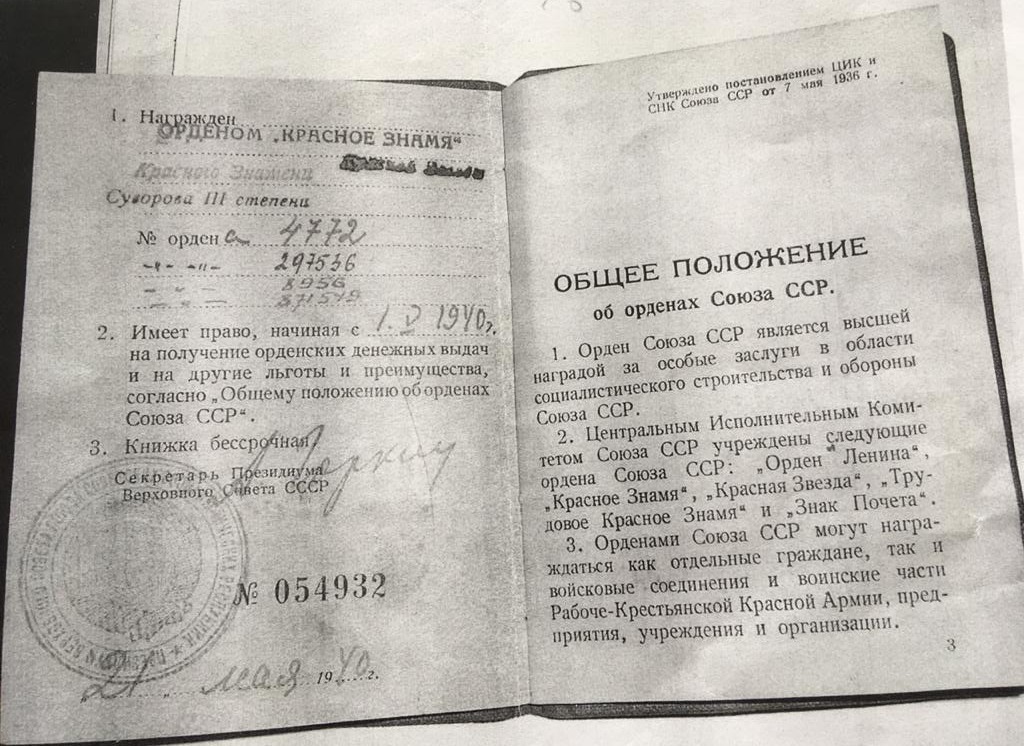 1. Награжден
ОРДЕНОМ „КРАСНОЕ ЗНАМЯ“
Красного Знамени
Суворова III степени
№ орден а 4772
-„- -„- 297536
8956
871549
2. Имеет право, начиная с 1.V 1940 г.
на получение орденских денежных выдач
и на другие льготы и преимущества,
согласно „Общему положению об орденах
Союза ССР“.
3. Книжка бессрочная
Секретарь Президиума
Верховного Совета СССР
№ 054932
21 мая 1940 г.
Утверждено постановлением ЦИК и
СНК Союза ССР от 7 мая 1936 г.
ОБЩЕЕ ПОЛОЖЕНИЕ
об орденах Союза ССР.
1. Орден Союза ССР является высшей
наградой за особые заслуги в области
социалистического строительства и обороны
Союза ССР.
2. Центральным Исполнительным Коми-
тетом Союза ССР учреждены следующие
ордена Союза ССР: „Орден Ленина“,
„Красное Знамя“, „Красная Звезда“, „Тру-
довое Красное Знамя“ и „Знак Почета“.
3. Орденами Союза ССР могут награ-
ждаться как отдельные граждане, так и
войсковые соединения и воинские части
Рабоче-Крестьянской Красной Армии, пред-
приятия, учреждения и организации.
3